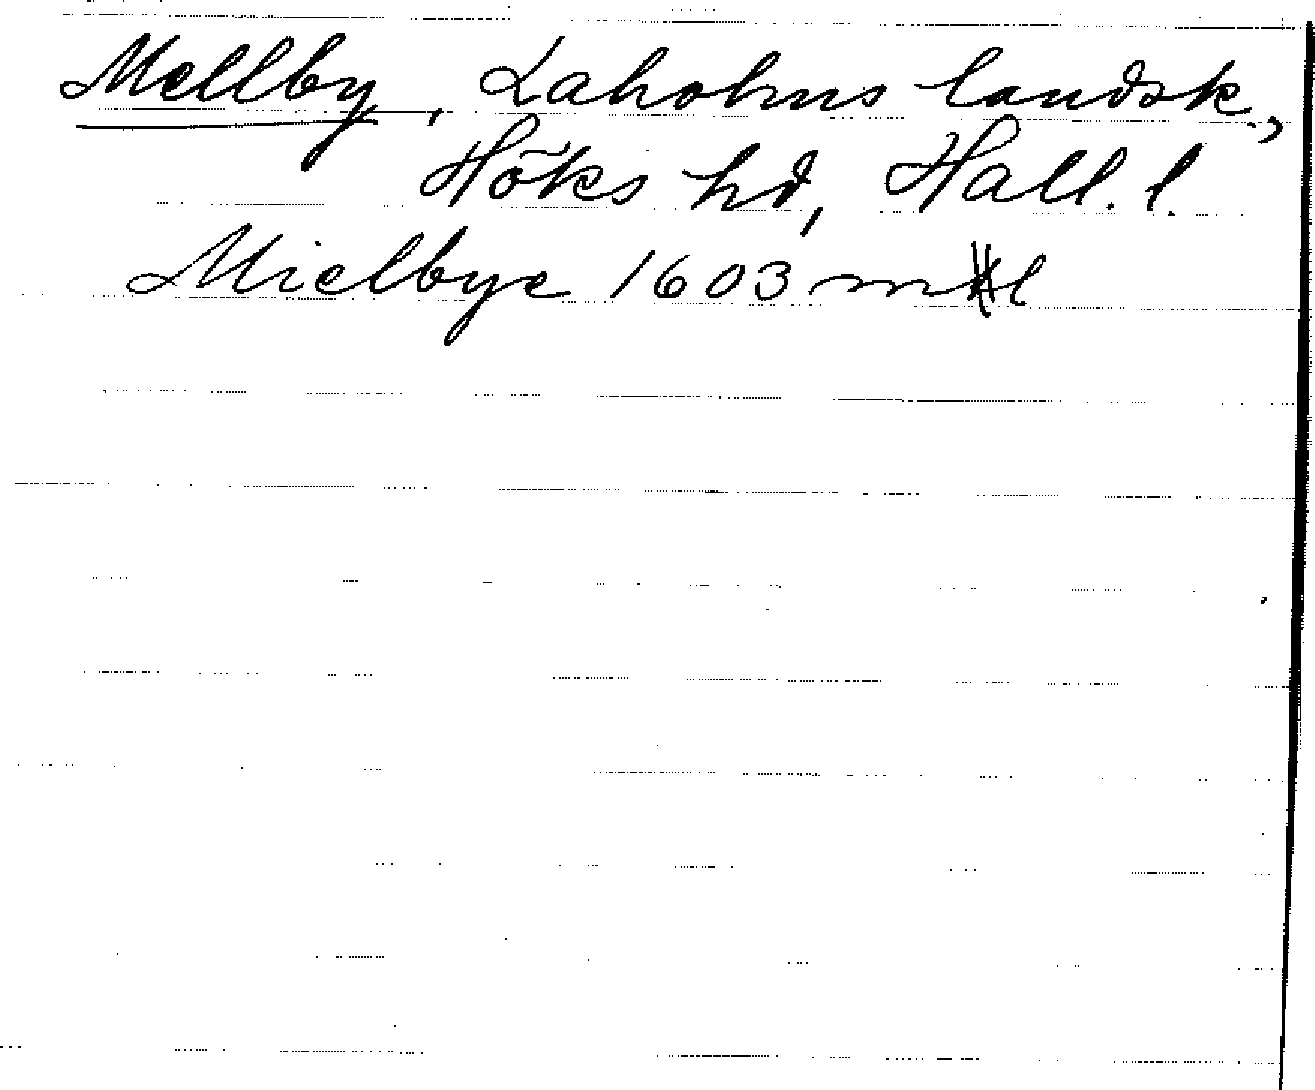 Mellby, Laholms landsk.,
Höks hd, Hall. l.
Mielbye 1603 ml